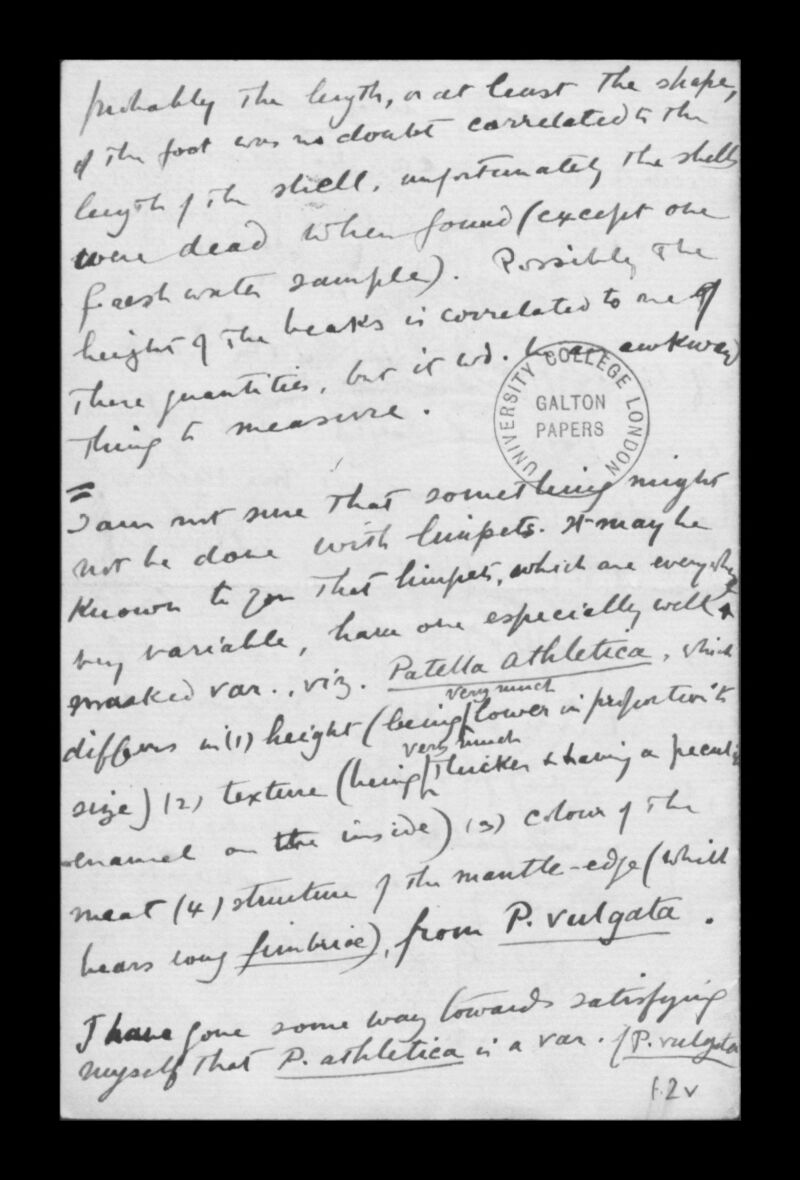 probably the length, or at least the shape,
of the foot was no doubt correlated to the
length of the shell. unfortunately the shells
were dead when found (except one
freshwater sample). Possibly the
height of the beaks is correlated to one of
these quantities, but it wd. be an awkward
thing to measure.
UNIVERSITY COLLEGE LONDON
GALTON
PAPERS
I am not sure that something might
not be done with limpets. It may be
known to you that limpets, which are everywhere
very variable, have one especially well
marked var., viz. Patella athletica, which
very much
differs in (1) height (being lower in proportion to
very much
size) (2) texture (being thicker & having a peculiar
enamel on the inside) (3) colour of the
meat (4) structure of the mantle-edge (which
bears long fimbriae), from P. vulgata.
I have gone some way towards satisfying
myself that P. athletica is a var. of P. vulgata
f.2v